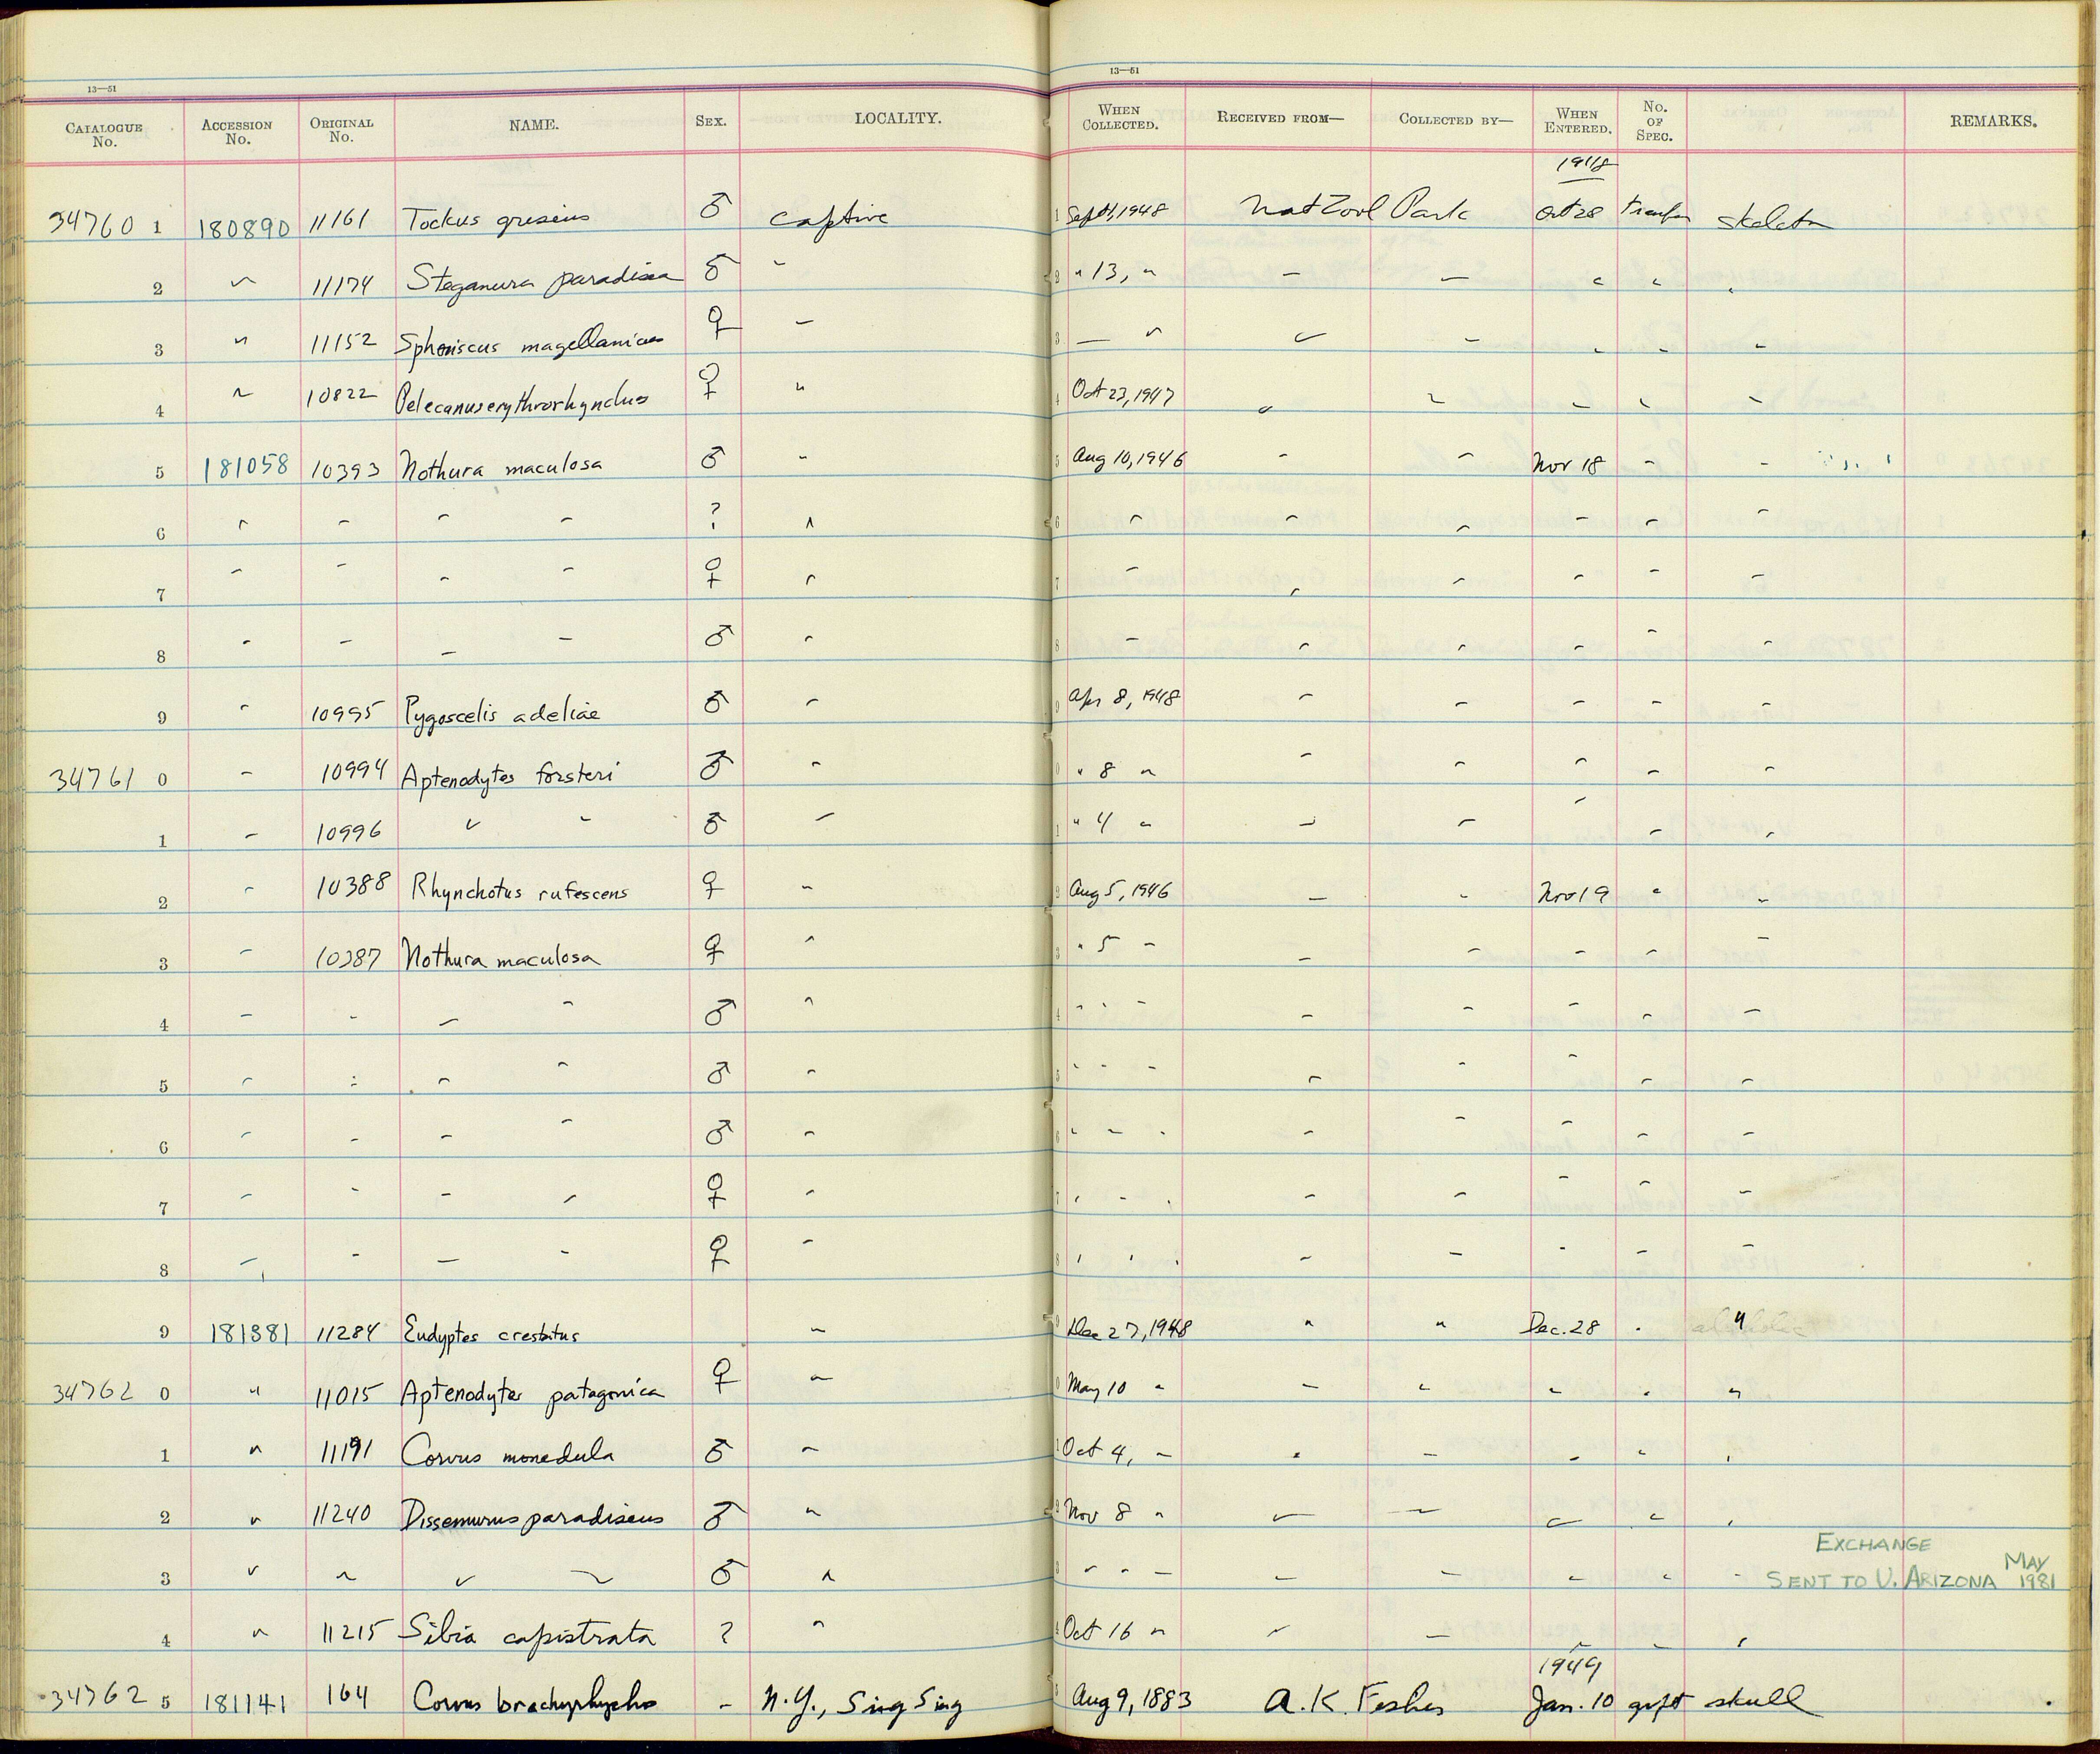 13—51
13—51
CATALOGUE No. ACCESSION No. ORIGINAL No. NAME. SEX. LOCALITY. WHEN COLLECTED. RECEIVED FROM— COLLECTED BY— WHEN ENTERED. No. OF SPEC. REMARKS.
1948
34760 1 180890 11161 Tockus griseus ♂ captive 1 Sept 1, 1948 Nat Zool Park Oct 28 transfer skeleton
2 " 11174 Steganura paradisea ♂ " 2 " 13, " " " " " "
3 " 11152 Spheniscus magellanicus ♀ " 3 — " " " " " "
4 " 10822 Pelecanus erythrorhynchus ♀ " 4 Oct 23, 1947 " " " " "
5 181058 10393 Nothura maculosa ♂ " 5 Aug 10, 1946 " " Nov 18 " "
6 " " " " ? " 6 " " " " " "
7 " " " " ♀ " 7 " " " " " "
8 " " " " ♂ " 8 " " " " " "
9 " 10995 Pygoscelis adeliae ♂ " 9 Apr 8, 1948 " " " " "
34761 0 " 10994 Aptenodytes forsteri ♂ " 0 " 8 " " " " " "
1 " 10996 " " ♂ " 1 " 4 " " " " " "
2 " 10388 Rhynchotus rufescens ♀ " 2 Aug 5, 1946 " " Nov 19 " "
3 " 10387 Nothura maculosa ♀ " 3 " 5 " " " " " "
4 " " " " ♂ " 4 " " " " " " " "
5 " " " " ♂ " 5 " " " " " " " "
6 " " " " ♂ " 6 " " " " " " " "
7 " " " " ♀ " 7 " " " " " " " "
8 " " " " ♀ " 8 " " " " " " " "
9 181381 11284 Eudyptes crestatus " 9 Dec 27, 1948 " " Dec. 28 " "
34762 0 " 11015 Aptenodytes patagonica ♀ " 0 May 10 " " " " " "
1 " 11191 Corvus monedula ♂ " 1 Oct 4, " " " " " "
2 " 11240 Dissemurus paradiseus ♂ " 2 Nov 8 " " " " " "
EXCHANGE
3 " " " " ♂ " 3 " " " " " " " " SENT TO U. ARIZONA MAY 1981
4 " 11215 Sibia capistrata ? " 4 Oct 16 " " " " " "
1949
34762 5 181141 164 Corvus brachyrhynchos - N.Y., Sing Sing 5 Aug 9, 1883 A.K. Fisher Jan. 10 gift skull